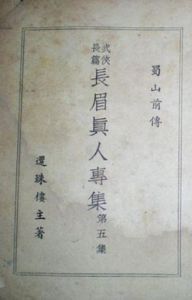 蜀山前傳
武俠
長篇
長眉真人專集
第五集
還珠樓主著